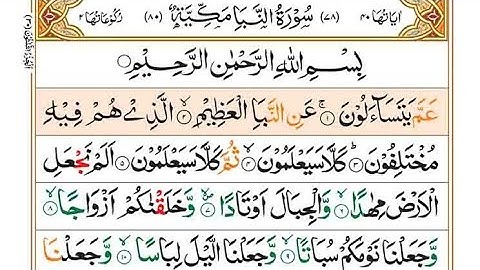 اٰیَاتُهَا ٤٠ (٧٨) سُوْرَةُ النَّبَاِ مَكِّیَّةٌ (٨٠) رُكُوْعَاتُهَا ٢
بِسْمِ اللهِ الرَّحْمٰنِ الرَّحِیْمِ
عَمَّ یَتَسَآءَلُوْنَ ۝١ عَنِ النَّبَاِ الْعَظِیْمِ ۝٢ الَّذِیْ هُمْ فِیْهِ
مُخْتَلِفُوْنَ ۝٣ كَلَّا سَیَعْلَمُوْنَ ۝٤ ثُمَّ كَلَّا سَیَعْلَمُوْنَ ۝٥ اَلَمْ نَجْعَلِ
الْاَرْضَ مِهٰدًا ۝٦ وَّالْجِبَالَ اَوْتَادًا ۝٧ وَّخَلَقْنٰكُمْ اَزْوَاجًا ۝٨
وَّجَعَلْنَا نَوْمَكُمْ سُبَاتًا ۝٩ وَّجَعَلْنَا الَّیْلَ لِبَاسًا ۝١٠ وَّجَعَلْنَا